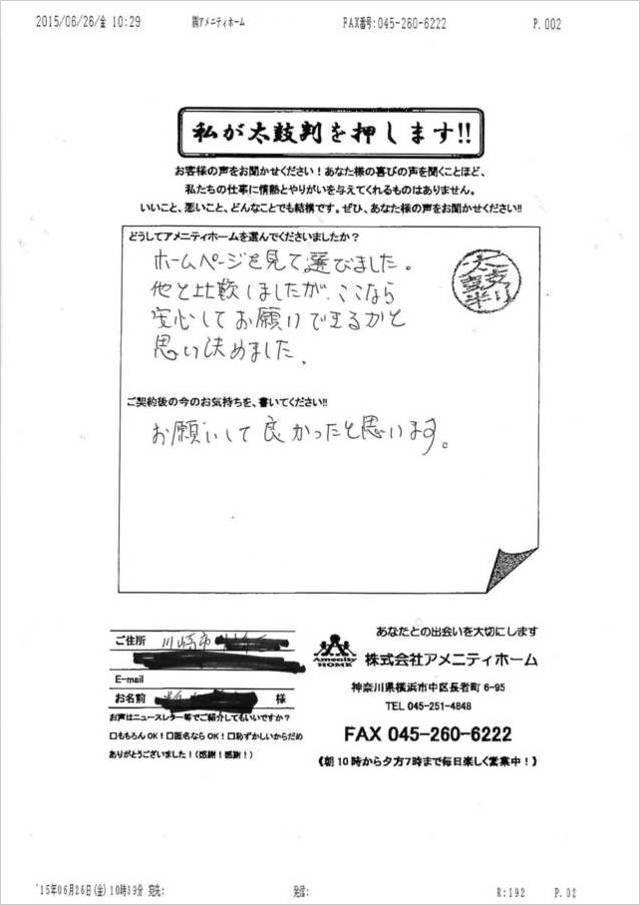 2015/06/26/金 10:29 ㈱アメニティホーム FAX番号:045-260-6222 P.002
私が太鼓判を押します!!
お客様の声をお聞かせください！あなた様の喜びの声を聞くことほど、
私たちの仕事に情熱とやりがいを与えてくれるものはありません。
いいこと、悪いこと、どんなことでも結構です。ぜひ、あなた様の声をお聞かせください!!
どうしてアメニティホームを選んでくださいましたか？
ホームページを見て選びました。
他と比較しましたが、ここなら
安心してお願いできるかと
思い決めました.
太鼓判
ご契約後の今のお気持ちを、書いてください!!
お願いして良かったと思います。
ご住所 川崎市
E-mail
お名前 様
お声はニュースレター等でご紹介してもいいですか？
口もちろんOK！口匿名ならOK！口恥ずかしいからだめ
ありがとうございました！（感謝！感謝！）
あなたとの出会いを大切にします
Amenity HOME 株式会社アメニティホーム
神奈川県横浜市中区長者町 6-95
TEL 045-251-4848
FAX 045-260-6222
《朝10時から夕方7時まで毎日楽しく営業中！》
'15年06月26日(金)10時39分 宛先: 発信: R:192 P.02